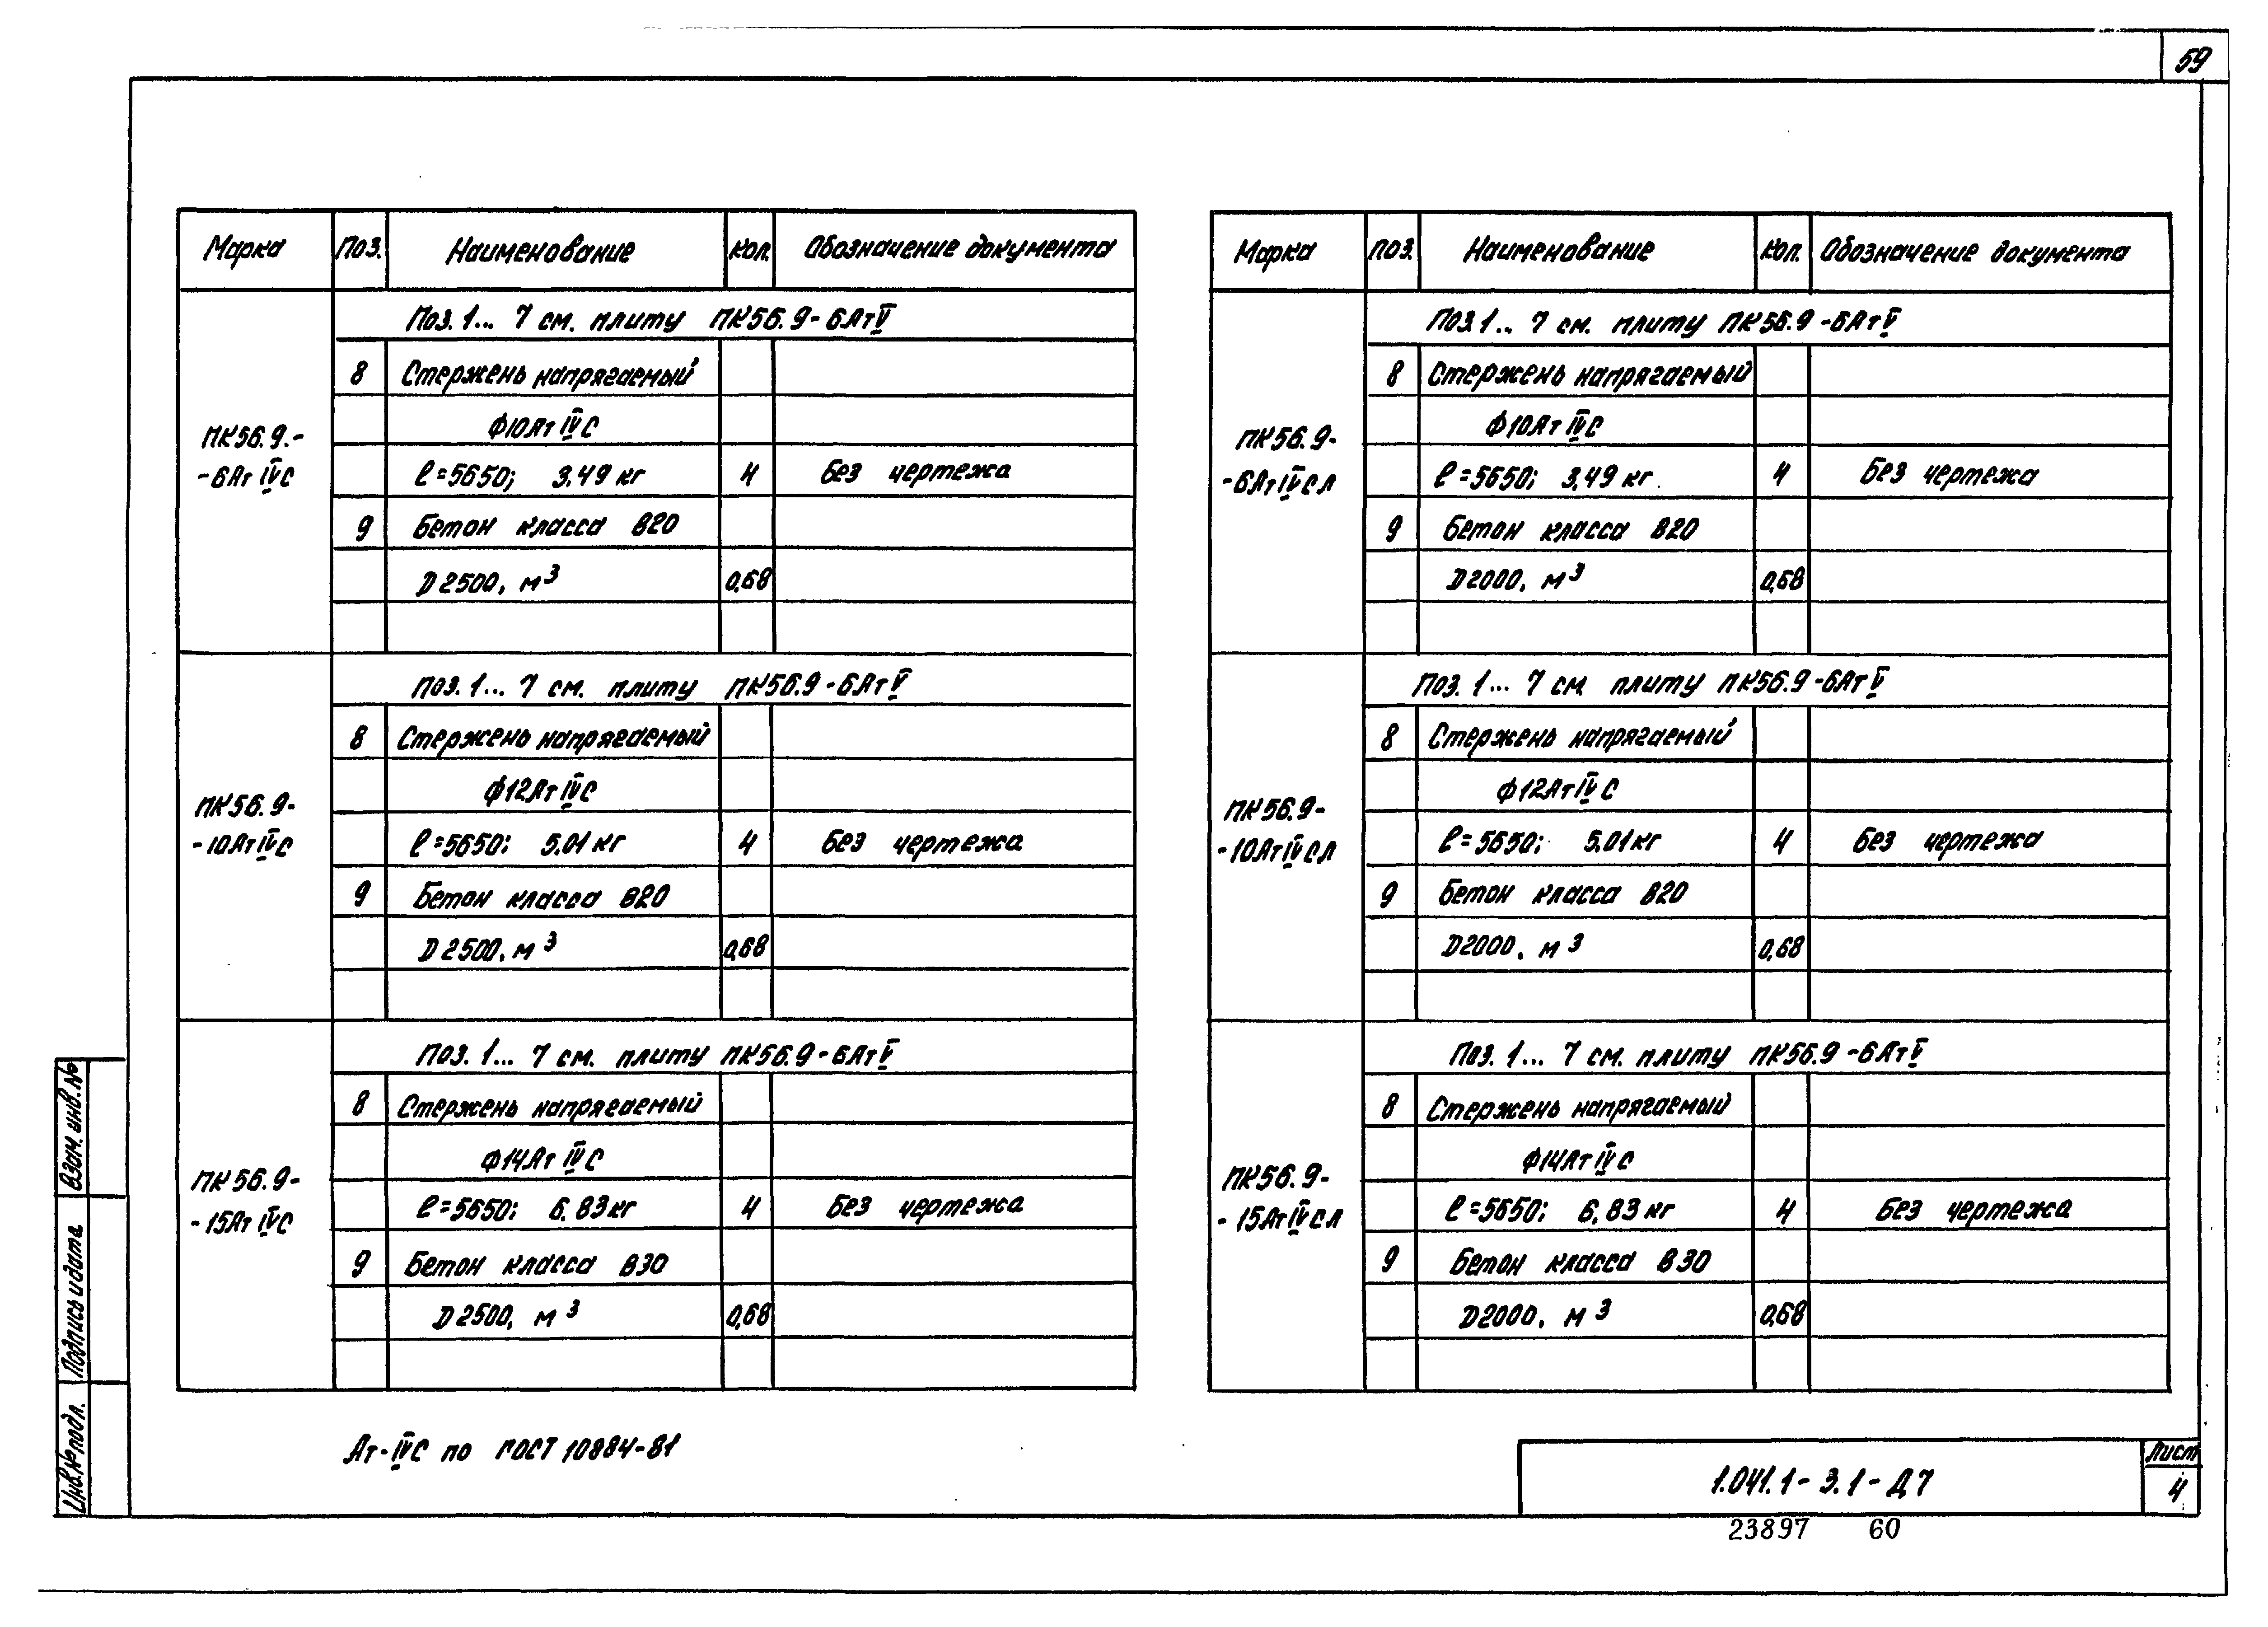 59
Марка Поз. Наименование Кол. Обозначение документа
Поз. 1... 7 см. плиту ПК56.9-6АтV
8 Стержень напрягаемый
Ф10АтIVС
ПК56.9.-
-6АтIVС
ℓ=5650; 3.49 кг 4 Без чертежа
9 Бетон класса В20
D2500, м³ 0,68
Поз. 1... 7 см. плиту ПК56.9-6АтV
8 Стержень напрягаемый
Ф12АтIVС
ПК56.9-
-10АтIVС
ℓ=5650; 5.01 кг 4 Без чертежа
9 Бетон класса В20
D2500, м³ 0,68
Поз. 1... 7 см. плиту ПК56.9-6АтV
8 Стержень напрягаемый
Ф14АтIVС
ПК56.9-
-15АтIVС
ℓ=5650; 6.83 кг 4 Без чертежа
9 Бетон класса В30
D2500, м³ 0,68
Марка Поз. Наименование Кол. Обозначение документа
Поз. 1... 7 см. плиту ПК56.9-6АтV
8 Стержень напрягаемый
Ф10АтIVС
ПК56.9-
-6АтIVСЛ
ℓ=5650; 3,49 кг. 4 Без чертежа
9 Бетон класса В20
D2000, м³ 0,68
Поз. 1... 7 см. плиту ПК56.9-6АтV
8 Стержень напрягаемый
Ф12АтIVС
ПК56.9-
-10АтIVСЛ
ℓ=5650; 5.01 кг 4 Без чертежа
9 Бетон класса В20
D2000, м³ 0,68
Поз. 1... 7 см. плиту ПК56.9-6АтV
8 Стержень напрягаемый
Ф14АтIVС
ПК56.9-
-15АтIVСЛ
ℓ=5650; 6,83 кг 4 Без чертежа
9 Бетон класса В30
D2000, м³ 0,68
Ат-IVС по ГОСТ 10884-81
1.041.1-3.1-Д7
Лист
4
23897 60
Взам. инв. №
Подпись и дата
Инв. № подл.